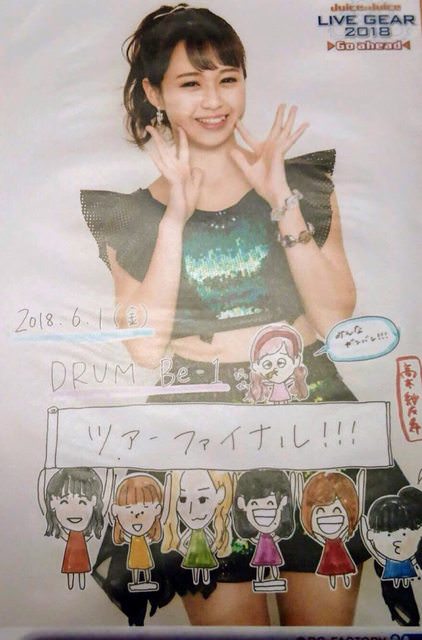 Juice=Juice
LIVE GEAR
2018
▶Go ahead◀
2018.6.1(金)
DRUM Be-1
みんな
ガンバレ!!!
ツアーファイナル!!!